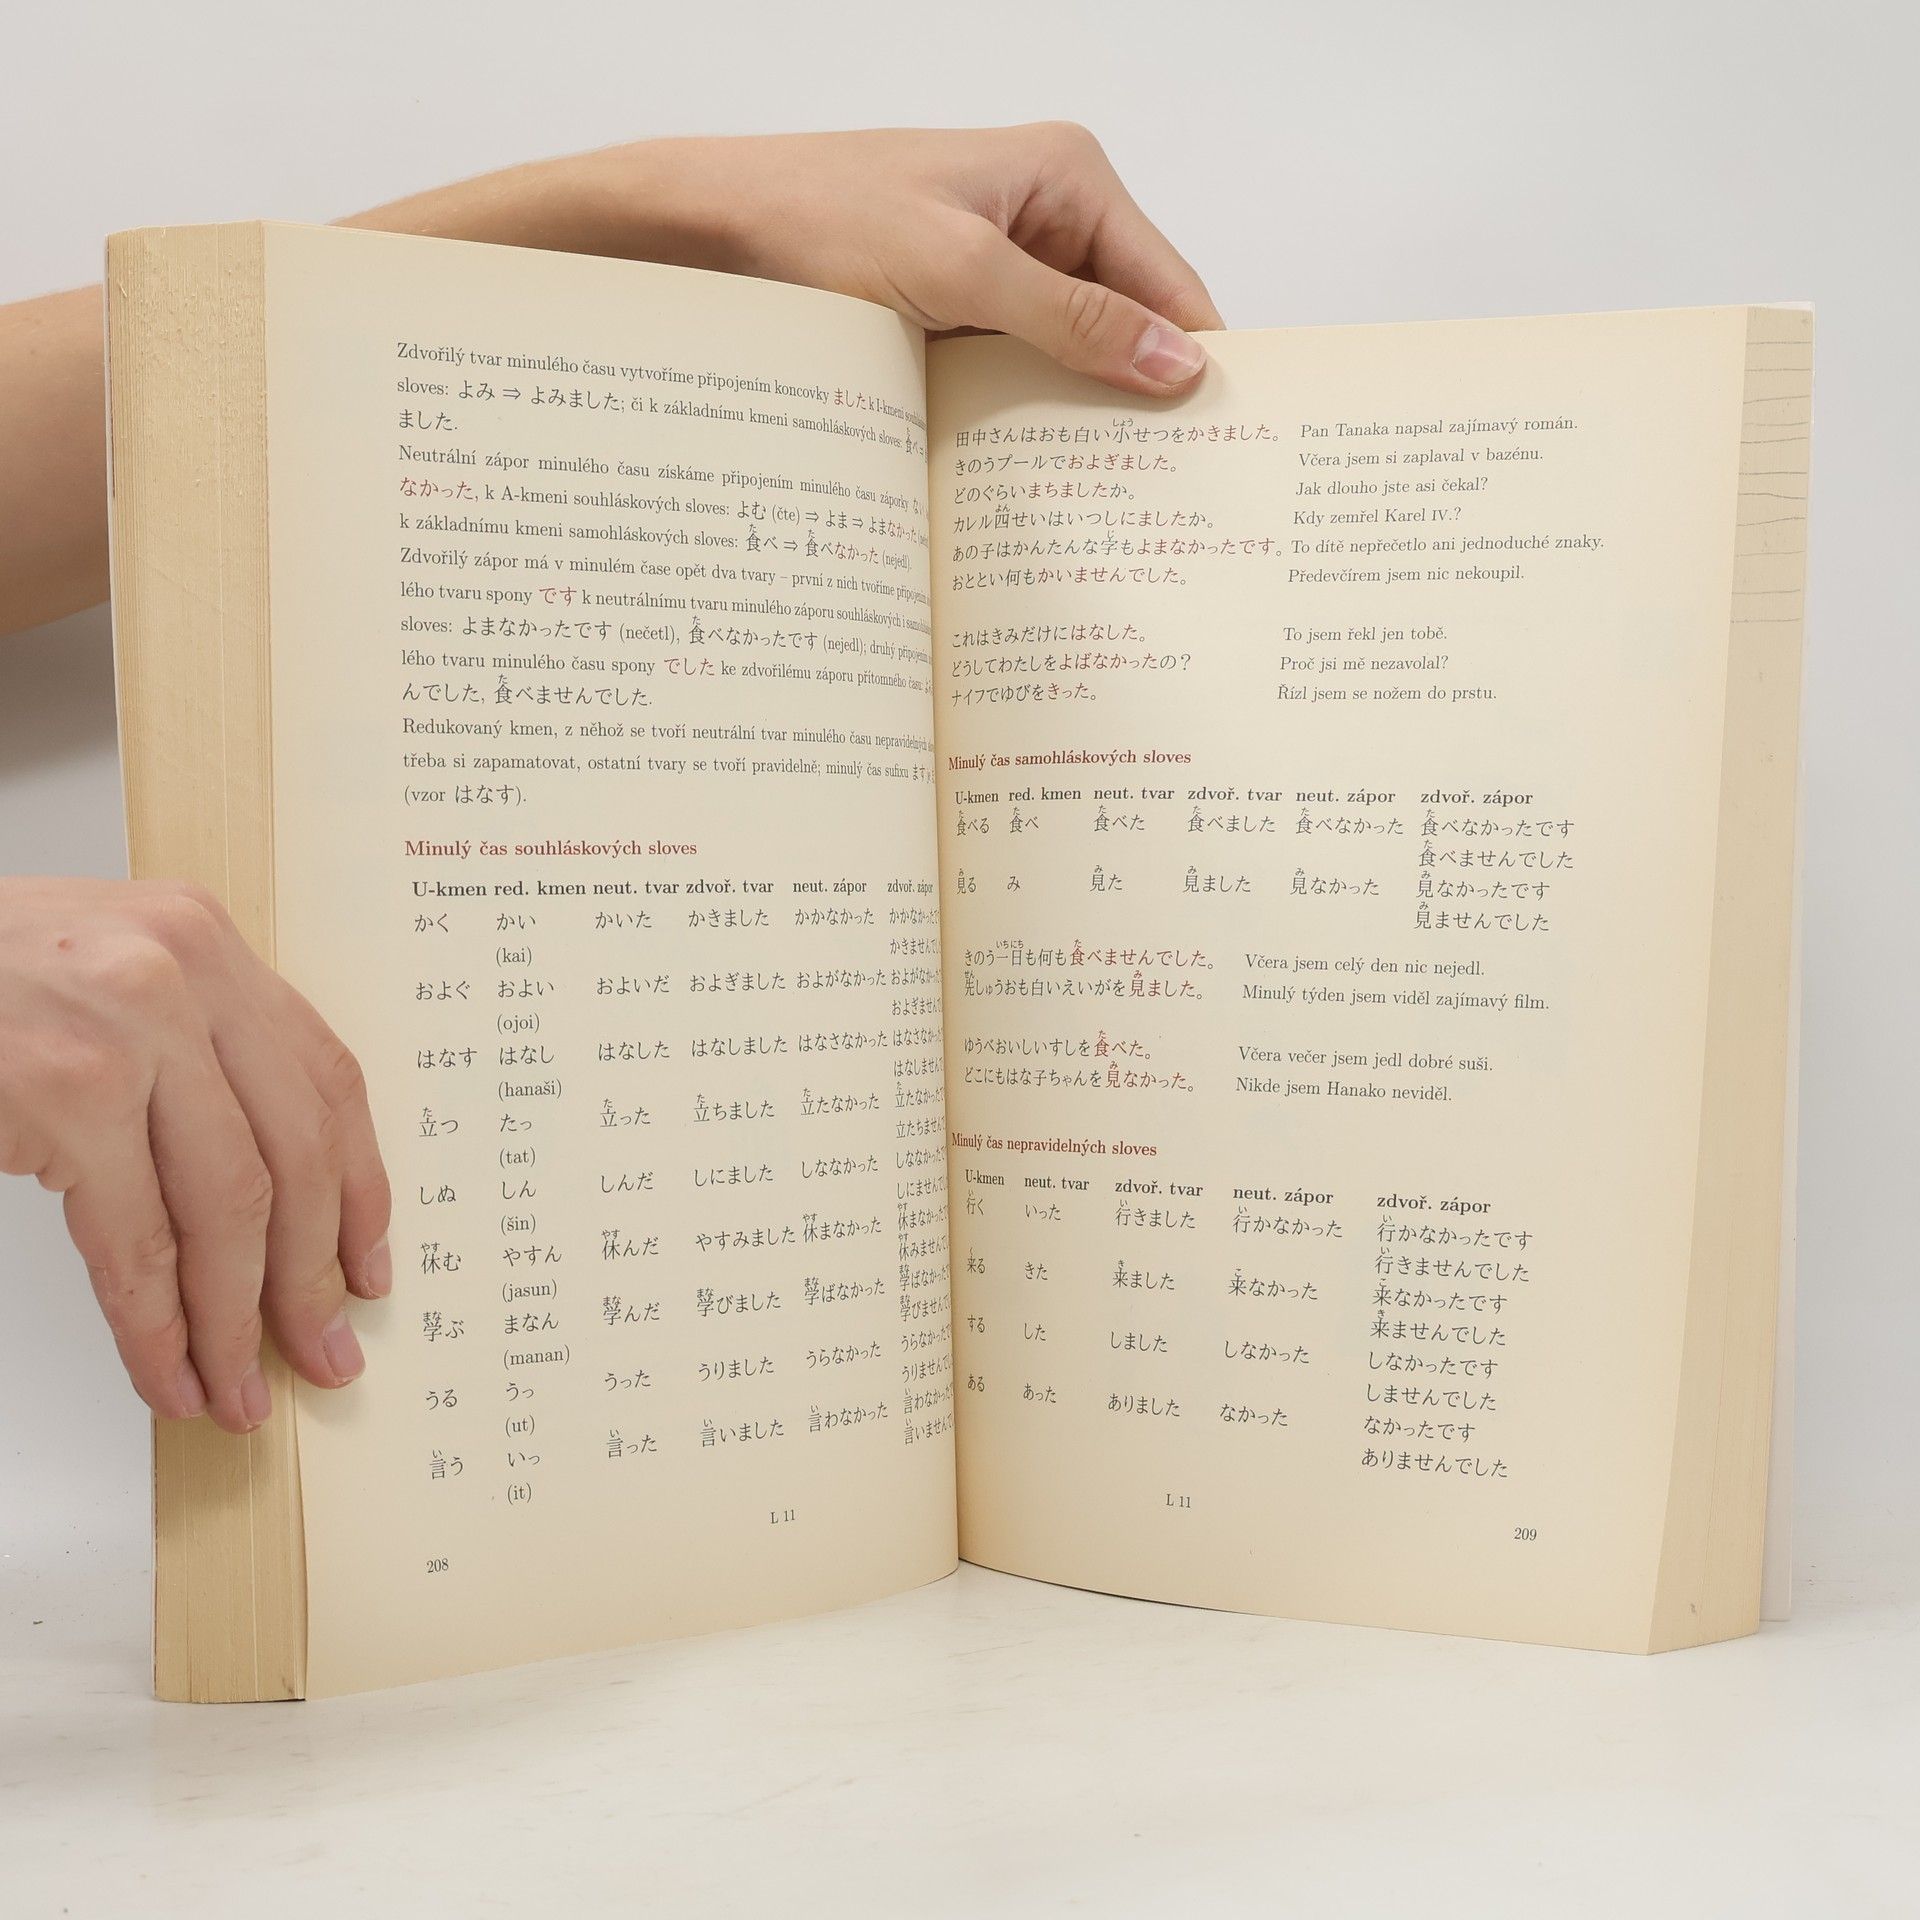 Zdvořilý tvar minulého času vytvoříme připojením koncovky ました k I-kmeni
sloves: よみ ⇒ よみました; či k základnímu kmeni samohláskových sloves: 食べ ⇒
ました.
Neutrální zápor minulého času získáme připojením minulého času záporky
なかった, k A-kmeni souhláskových sloves: よむ (čte) ⇒ よま ⇒ よまなかった
k základnímu kmeni samohláskových sloves: 食べ ⇒ 食べなかった (nejedl).
Zdvořilý zápor má v minulém čase opět dva tvary – první z nich tvoříme připojením
lého tvaru spony です k neutrálnímu tvaru minulého záporu souhláskových i
sloves: よまなかったです (nečetl), 食べなかったです (nejedl); druhý připojením
lého tvaru minulého času spony でした ke zdvořilému záporu přítomného času:
んでした, 食べませんでした.
Redukovaný kmen, z něhož se tvoří neutrální tvar minulého času nepravidelných
třeba si zapamatovat, ostatní tvary se tvoří pravidelně; minulý čas sufixu ます
(vzor はなす).
Minulý čas souhláskových sloves
U-kmen red. kmen neut. tvar zdvoř. tvar neut. zápor zdvoř. zápor
かく かい かいた かきました かかなかった かかなかった
(kai) かきませんでし
およぐ およい およいだ およぎました およがなかった およがなかった
(ojoi) およぎません
はなす はなし はなした はなしました はなさなかった はなさなかった
(hanaši) はなしません
立つ たっ 立った 立ちました 立たなかった 立たなかった
(tat) 立たちません
しぬ しん しんだ しにました しななかった しななかった
(šin) しにません
休む やすん 休んだ やすみました 休まなかった 休まなかった
(jasun) 休みません
學ぶ まなん 學んだ 學びました 學ばなかった 學ばなかった
(manan) 學びません
うる うっ うった うりました うらなかった うらなかった
(ut) うりません
言う いっ 言った 言いました 言わなかった 言わなかった
(it) 言いません
L 11
208
田中さんはおも白い小せつをかきました。 Pan Tanaka napsal zajímavý román.
きのうプールでおよぎました。 Včera jsem si zaplaval v bazénu.
どのぐらいまちましたか。 Jak dlouho jste asi čekal?
カレル四せいはいつしにましたか。 Kdy zemřel Karel IV.?
あの子はかんたんな字もよまなかったです。 To dítě nepřečetlo ani jednoduché znaky.
おととい何もかいませんでした。 Předevčírem jsem nic nekoupil.
これはきみだけにはなした。 To jsem řekl jen tobě.
どうしてわたしをよばなかったの？ Proč jsi mě nezavolal?
ナイフでゆびをきった。 Řízl jsem se nožem do prstu.
Minulý čas samohláskových sloves
U-kmen red. kmen neut. tvar zdvoř. tvar neut. zápor zdvoř. zápor
食べる 食べ 食べた 食べました 食べなかった 食べなかったです
食べませんでした
見る み 見た 見ました 見なかった 見なかったです
見ませんでした
きのう一日も何も食べませんでした。 Včera jsem celý den nic nejedl.
先しゅうおも白いえいがを見ました。 Minulý týden jsem viděl zajímavý film.
ゆうべおいしいすしを食べた。 Včera večer jsem jedl dobré suši.
どこにもはな子ちゃんを見なかった。 Nikde jsem Hanako neviděl.
Minulý čas nepravidelných sloves
U-kmen neut. tvar zdvoř. tvar neut. zápor zdvoř. zápor
行く いった 行きました 行かなかった 行かなかったです
行きませんでした
来る きた 来ました 来なかった 来なかったです
来ませんでした
する した しました しなかった しなかったです
しませんでした
ある あった ありました なかった なかったです
ありませんでした
L 11
209